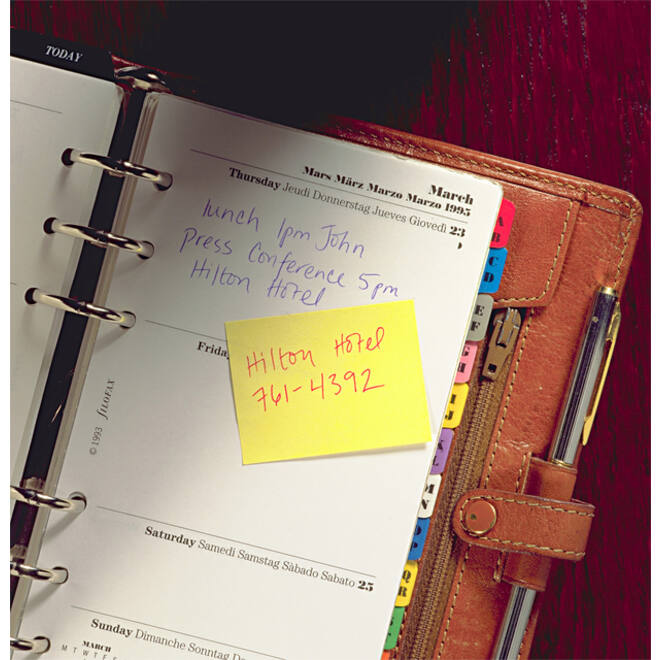 TODAY
March
Mars März Marzo Marzo 1995
Thursday Jeudi Donnerstag Jueves Giovedì 23
lunch 1pm John
Press Conference 5pm
Hilton Hotel
Friday
Hilton Hotel
761-4392
© 1993 filofax
Saturday Samedi Samstag Sàbado Sabato 25
Sunday Dimanche Sonntag
MARCH
M T W T F
A
B
C
D
E
F
G
H
I
J
K
L
M
N
O
P
Q
R